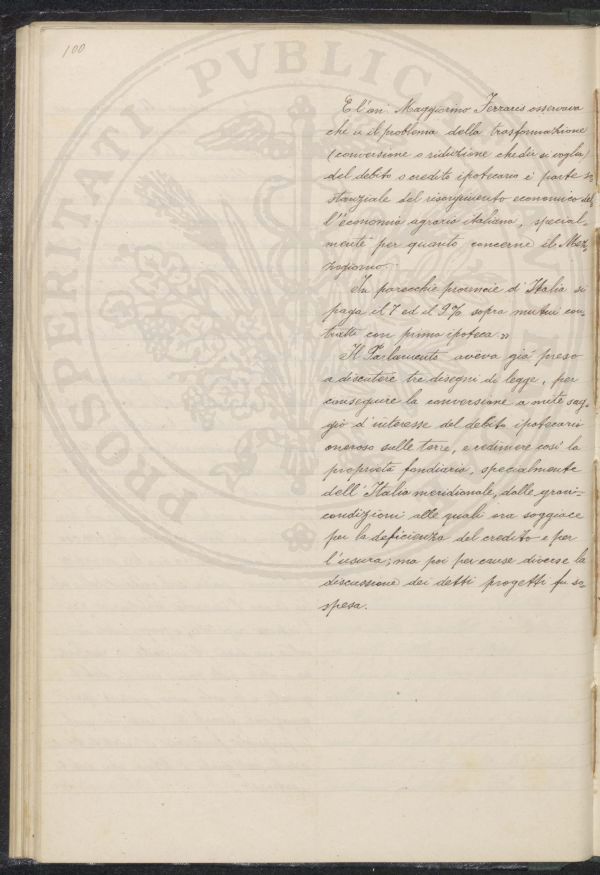 100
E l'on. Maggiorino Ferraris osservava
che « il problema della trasformazione
(conversione o riduzione che dir si voglia)
del debito o credito ipotecario è parte so
stanziale del risorgimento economico del
l'economia agraria italiana, special-
mente per quanto concerne il Mez,
zogiorno.
In parecchie provincie d'Italia si
paga il 7 ed il 9% sopra mutui con-
tratti con prima ipoteca »
Il Parlamento aveva già preso
a discutere tre disegni di legge, per
conseguire la conversione a mite sag-
gio d'interesse del debito ipotecario
oneroso sulle terre, e redimere così la
proprietà fondiaria, specialmente
dell'Italia meridionale, dalle gravi
condizioni alle quali ora soggiace
per la deficienza del credito e per
l'usura; ma poi per cause diverse la
discussione dei detti progetti fu so-
spesa.
PROSPERITATI PVBLICAE